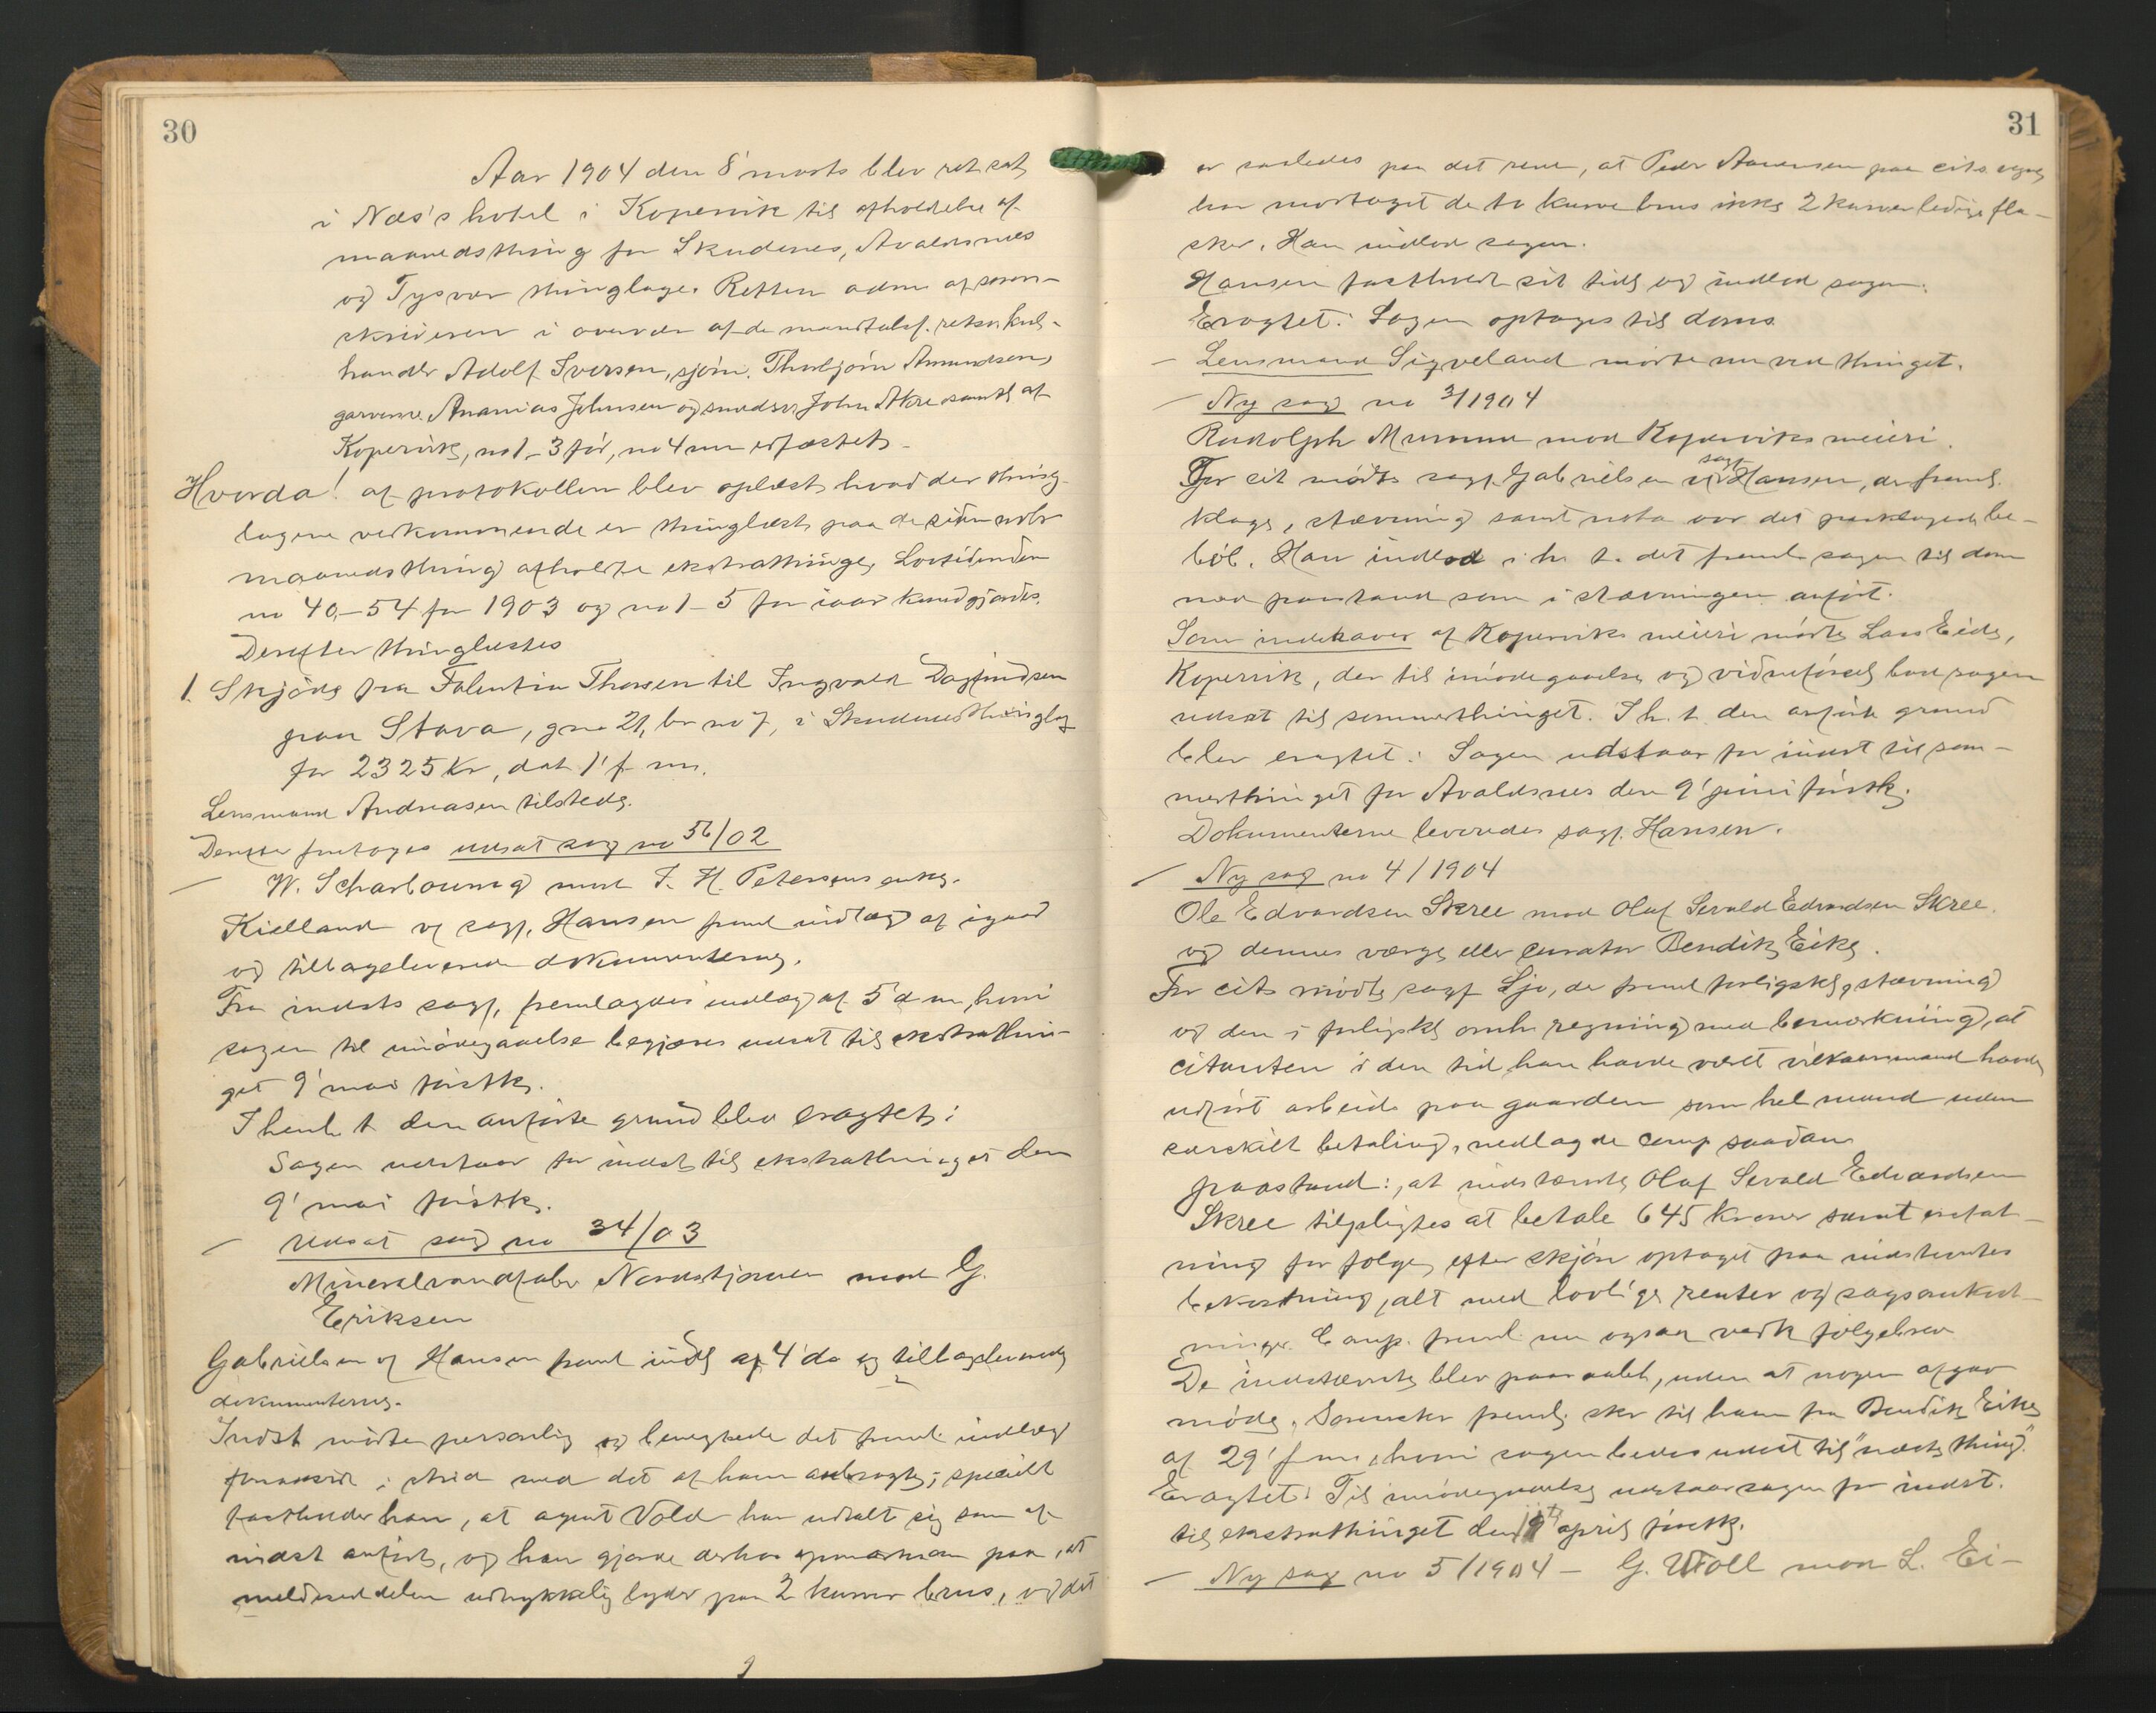 30
Aar 1904 den 8' marts blev ret sat
i Næs's hotel i Kopervik til afholdelse af
maanedsthing for Skudenes, Avaldsnes
og Tysvær thinglage. Retten adm af soren-
skriveren i overvær af de mandtalsf. retsv kul-
handler Adolf Iversen, sjøm. Thorbjörn Amundsen,
garver Ananias Johnsen og smedsv John Akre samtl af
Kopervik, no 1-3 før, no 4 nu edfæstet.
Hvorda! af protokollen blev oplæst hvad der thing-
lagene vedkommende er thinglæst paa de siden novbr
maanedsthing afholdte ekstrathinge, Lovtidenden
no 40-54 for 1903 og no 1-5 for iaar kundgjordes.
Derefter thinglæstes
1. Skjöde fra Falentin Thorsen til Ingvald Dagfindsen
paa Stava, gno 21, br no 7, i Skudenes thinglag
for 2325 Kr, dat 1' f m.
Lensmand Andreasen tilstede.
Derefter foretoges udsat sag no 56/02
W. Scharbouwig mod T. H. Petersens enke.
Kielland v sagf. Hansen freml indlæg af igaar
og tilbageleverede dokumenterne.
Fra indsts sagf. fremlagdes indlæg af 5 d m, hvori
sagen til imödegaaelse begjæres udsat til ekstrathin-
get 9' mai förstk.
I henh t den anförte grund blev eragtet:
Sagen udstaar for indst til ekstrathinget den
9' mai förstk.
Udsat sag no 34/03
Mineralvandfabr Nordstjernen mod G.
Eriksen
Gabrielsen v Hansen freml indl af 4' ds og tilbageleverede
dokumenterne.
Indst mödte personlig og benegtede det freml indlæg
forsaavidt i strid med det af ham anbragte; specielt
fastholder han, at agent Vold har udtalt sig som af
indst anfört, og han gjorde derhos opmærksom paa, at
meldeseddelen udtrykkelig lyder paa 2 kurver brus, og det
31
er saaledes paa det rene, at Peder Aanensen paa cits vegne
har mottaget de to kurve brus ikke 2 kurver ledige fla-
sker. Han indlod sagen.
Hansen fastholdt sit tidl og indlod sagen.
Eragtet: Sagen optages til doms
Lensmand Sigveland mödte nu ved thinget.
Ny sag no 3/1904
Rudolph Mumme mod Koperviks meieri.
For cit mödte sagf. Gabrielsen v sagf Hansen, der freml.
klage, stævning samt nota over det paaklagede be-
löb. Han indlod i h. t. det freml sagen til dom
med paastand som i stævningen anfört.
Som indehaver af Koperviks meieri mödte Lars Eide,
Kopervik, der til imödegaaelse og vidneförsel bad sagen
udsat til sommerthinget. I h. t. den anförte grund
blev eragtet: Sagen udstaar for indst til som-
merthinget for Avaldsnes den 9' juni förstk.
Dokumenterne leveredes sagf. Hansen.
Ny sag no 4/1904
Ole Edvardsen Skree mod Olaf Sevald Edvardsen Skree
og dennes værge eller curator Bendik Eike.
For cits mödte sagf Ljo, der freml forligskl, stævning
og den i forligskl omh regning med bemærkning, at
citanten i den tid han havde været vilkaarsmand havde
udfört arbeide paa gaarden som hel mand uden
særskilt betaling, nedlagde comp saadan
paastand: at indstævnte Olaf Sevald Edvardsen
Skree tilpligtes at betale 645 kroner samt erstat-
ning for følge, efter skjön optaget paa indstævntes
bekostning, alt med lovlige renter og sagsomkost-
ninger. Comp. freml nu ogsaa vedk følgebrev
De indstævnte blev paaraabt, uden at nogen afgav
möde. Sorenskr freml skr til ham fra Bendik Eike
af 29' f m, hvori sagen bedes udsat til "næste thing".
Eragtet: Til imödegaaelse udstaar sagen for indst.
til ekstrathinget den april förstk.
Ny sag no 5/1904 - G. Woll mod L. Ei-